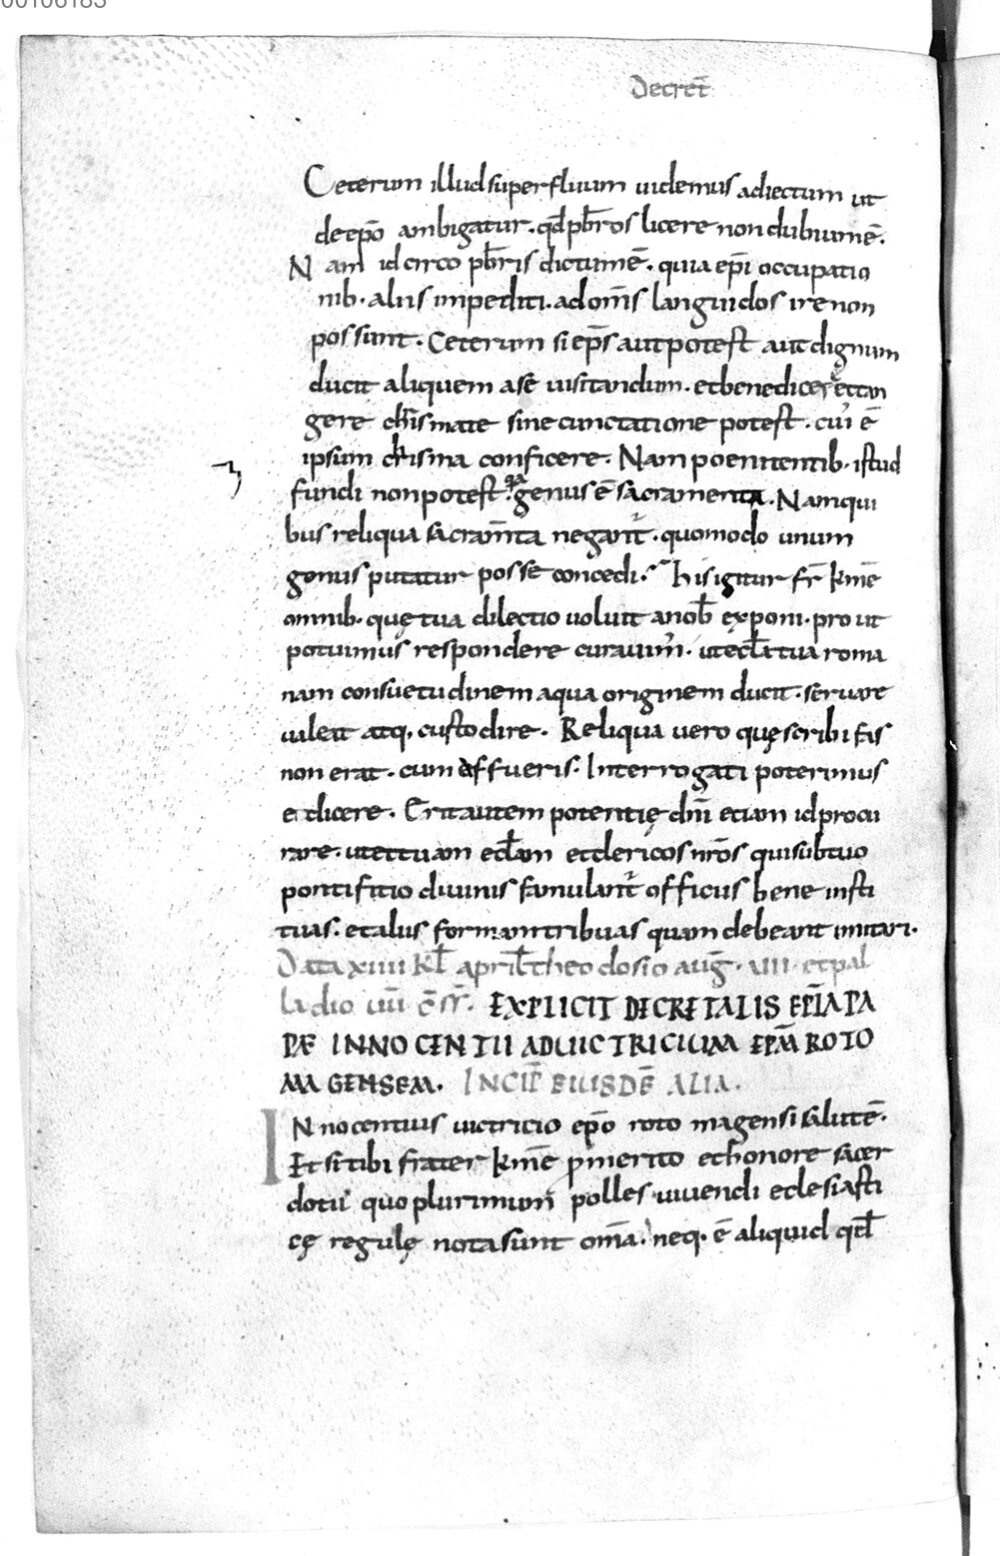 00106183
Decret̄
Ceterum illud superfluum uidemus adiectum ut
de ep̄o ambigatur. qđ pb̄ros licere non dubium ē.
Nam idcirco pb̄ris dictum ē. quia ep̄i occupatio
nib. aliis impediti. ad om̄s languidos ire non
possunt. Ceterum si ep̄s aut potest aut dignum
ducit aliquem a se uisitandum. et benedicere et tan
gere chrismate sine cunctatione potest. cui' ē
ipsum chrisma conficere. Nam poenitentib. istud
fundi non potest. quia genus ē sacramenta. Nam qui
bus reliqua sacram̄ta negant'. quomodo unum
genus putatur posse concedi. His igitur fr̄ km̄e
omnib. quę tua dilectio uoluit a nob̄ exponi. prout
potuimus respondere curauim'. ut eccł̄a tua roma
nam consuetudinem a qua originem ducit. seruare
ualeat atq. custodire. Reliqua uero quę scribi fas
non erat. cum affueris. Interrogati poterimus
edicere. Erit autem potentię dn̄i etiam id procu
rare. ut et tuam eccł̄am et clericos nr̄os qui sub tuo
pontifitio diuinis famulant' officiis bene insti
tuas. et aliis formam tribuas quam debeant imitari.
Data xiiii kł april theodosio aug̅. uiii et pal
ladio uū c̄ss̄. EXPLICIT DECRETALIS EPĪA PA
PÆ INNOCENTII AD UICTRICIUM EPM̄ ROTO
MAGENSEM. INCIP̄ EIUSDĒ ALIA.
INnocentius uictricio ep̄o rotomagensi salutē.
Et si tibi frater km̄e p merito et honore sacer
dotii quo plurimum polles uiuendi eclesiasti
cę regulę nota sunt om̄a. neq. ē aliquid qđ